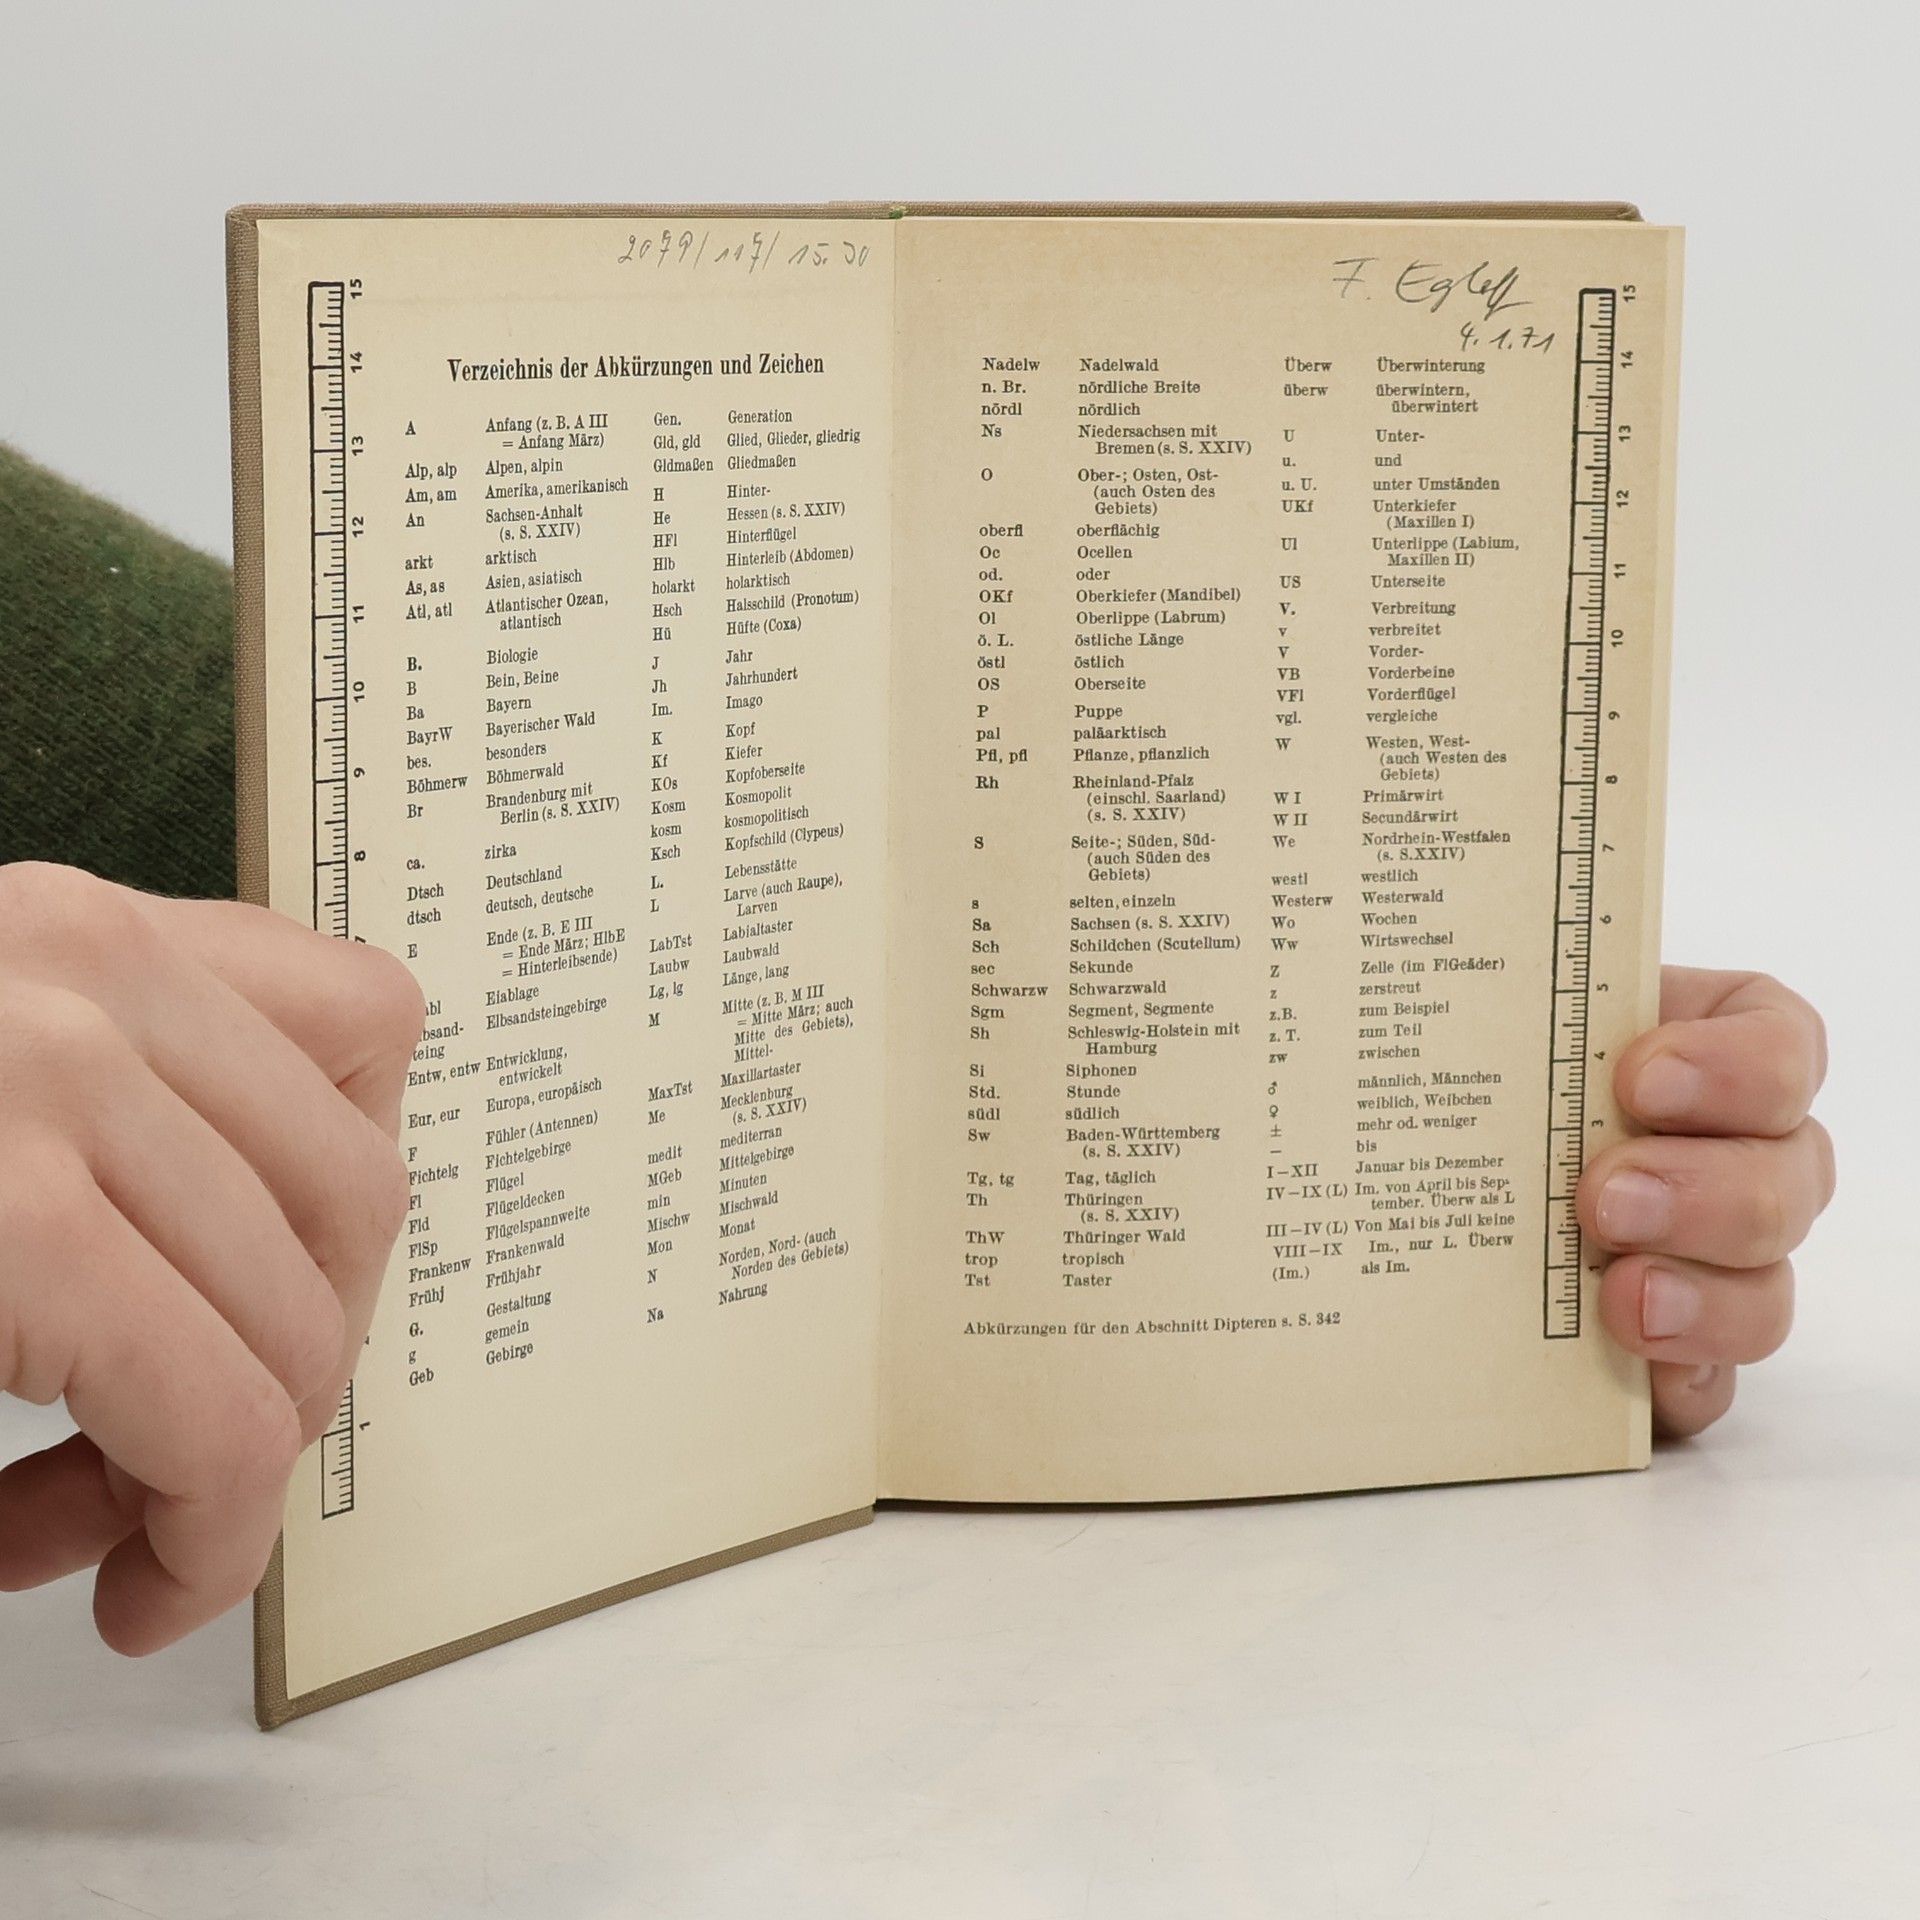 2079/117/ 15.30
Verzeichnis der Abkürzungen und Zeichen
A Anfang (z. B. A III
= Anfang März)
Alp, alp Alpen, alpin
Am, am Amerika, amerikanisch
An Sachsen-Anhalt
(s. S. XXIV)
arkt arktisch
As, as Asien, asiatisch
Atl, atl Atlantischer Ozean,
atlantisch
B. Biologie
B Bein, Beine
Ba Bayern
BayrW Bayerischer Wald
bes. besonders
Böhmerw Böhmerwald
Br Brandenburg mit
Berlin (s. S. XXIV)
ca. zirka
Dtsch Deutschland
dtsch deutsch, deutsche
E Ende (z. B. E III
= Ende März; HlbE
= Hinterleibsende)
Eiablage
Elbsandsteingebirge
Entw, entw Entwicklung,
entwickelt
Eur, eur Europa, europäisch
F Fühler (Antennen)
Fichtelg Fichtelgebirge
Fl Flügel
Fld Flügeldecken
FlSp Flügelspannweite
Frankenw Frankenwald
Frühj Frühjahr
G. Gestaltung
g gemein
Geb Gebirge
Gen. Generation
Gld, gld Glied, Glieder, gliedrig
Gldmaßen Gliedmaßen
H Hinter-
He Hessen (s. S. XXIV)
HFl Hinterflügel
Hlb Hinterleib (Abdomen)
holarkt holarktisch
Hsch Halsschild (Pronotum)
Hü Hüfte (Coxa)
J Jahr
Jh Jahrhundert
Im. Imago
K Kopf
Kf Kiefer
KOs Kopfoberseite
Kosm Kosmopolit
kosm kosmopolitisch
Ksch Kopfschild (Clypeus)
L. Lebensstätte
L Larve (auch Raupe),
Larven
LabTst Labialtaster
Laubw Laubwald
Lg, lg Länge, lang
M Mitte (z. B. M III
= Mitte März; auch
Mitte des Gebiets),
Mittel-
MaxTst Maxillartaster
Me Mecklenburg
(s. S. XXIV)
medit mediterran
MGeb Mittelgebirge
min Minuten
Mischw Mischwald
Mon Monat
N Norden, Nord- (auch
Norden des Gebiets)
Na Nahrung
15
14
13
12
11
10
9
8
7
1
F.
4.1.71
Nadelw Nadelwald
n. Br. nördliche Breite
nördl nördlich
Ns Niedersachsen mit
Bremen (s. S. XXIV)
O Ober-; Osten, Ost-
(auch Osten des
Gebiets)
oberfl oberflächig
Oc Ocellen
od. oder
OKf Oberkiefer (Mandibel)
Ol Oberlippe (Labrum)
ö. L. östliche Länge
östl östlich
OS Oberseite
P Puppe
pal paläarktisch
Pfl, pfl Pflanze, pflanzlich
Rh Rheinland-Pfalz
(einschl. Saarland)
(s. S. XXIV)
S Seite-; Süden, Süd-
(auch Süden des
Gebiets)
s selten, einzeln
Sa Sachsen (s. S. XXIV)
Sch Schildchen (Scutellum)
sec Sekunde
Schwarzw Schwarzwald
Sgm Segment, Segmente
Sh Schleswig-Holstein mit
Hamburg
Si Siphonen
Std. Stunde
südl südlich
Sw Baden-Württemberg
(s. S. XXIV)
Tg, tg Tag, täglich
Th Thüringen
(s. S. XXIV)
ThW Thüringer Wald
trop tropisch
Tst Taster
Überw Überwinterung
überw überwintern,
überwintert
U Unter-
u. und
u. U. unter Umständen
UKf Unterkiefer
(Maxillen I)
Ul Unterlippe (Labium,
Maxillen II)
US Unterseite
V. Verbreitung
v verbreitet
V Vorder-
VB Vorderbeine
VFl Vorderflügel
vgl. vergleiche
W Westen, West-
(auch Westen des
Gebiets)
W I Primärwirt
W II Secundärwirt
We Nordrhein-Westfalen
(s. S.XXIV)
westl westlich
Westerw Westerwald
Wo Wochen
Ww Wirtswechsel
Z Zelle (im FlGeäder)
z zerstreut
z.B. zum Beispiel
z. T. zum Teil
zw zwischen
♂ männlich, Männchen
♀ weiblich, Weibchen
± mehr od. weniger
– bis
I–XII Januar bis Dezember
IV–IX (L) Im. von April bis Sep-
tember. Überw als L
III–IV (L) Von Mai bis Juli keine
VIII–IX Im., nur L. Überw
(Im.) als Im.
Abkürzungen für den Abschnitt Dipteren s. S. 342
15
14
13
12
11
10
9
8
7
6
5
4
3
1